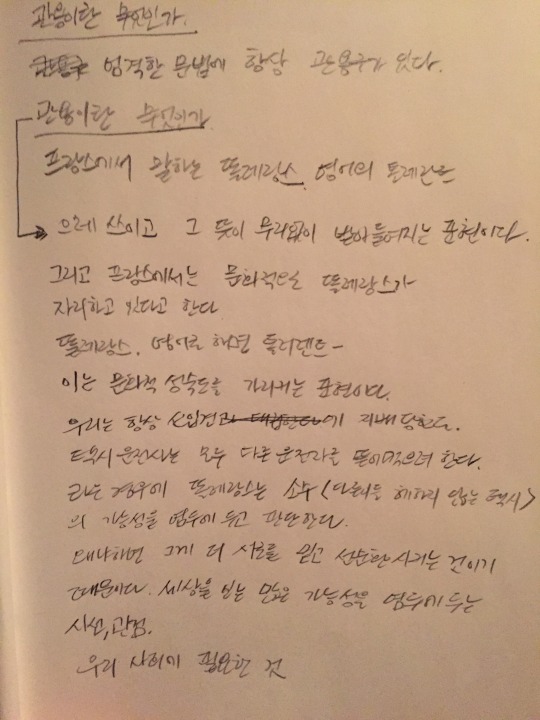 관용이란 무엇인가.
엄격한 문법에 항상 관용구가 있다.
관용이란 무엇인가
프랑스에서 말하는 똘레랑스, 영어의 톨레란트
으레 쓰이고 그 뜻이 무리없이 받아들여지는 표현이다.
그리고 프랑스에서는 문화적으로 똘레랑스가
자리하고 있다고 한다
똘레랑스. 영어로 하면 톨러렌트-
이는 문화적 성숙도를 가리키는 표현이다.
우리는 항상 선입견에 지배 당한다.
택시운전사는 모두 다른 운전자를 뜯어먹으려 한다.
라는 경우에 똘레랑스는 소수 <타인을 해하지 않는 택시>
의 가능성을 염두에 두고 판단한다.
왜냐하면 그게 더 서로를 믿고 사는 것이기
때문이다. 세상을 보는 많은 가능성을 염두에 두는
시선, 관점.
우리 사회에 필요한 것